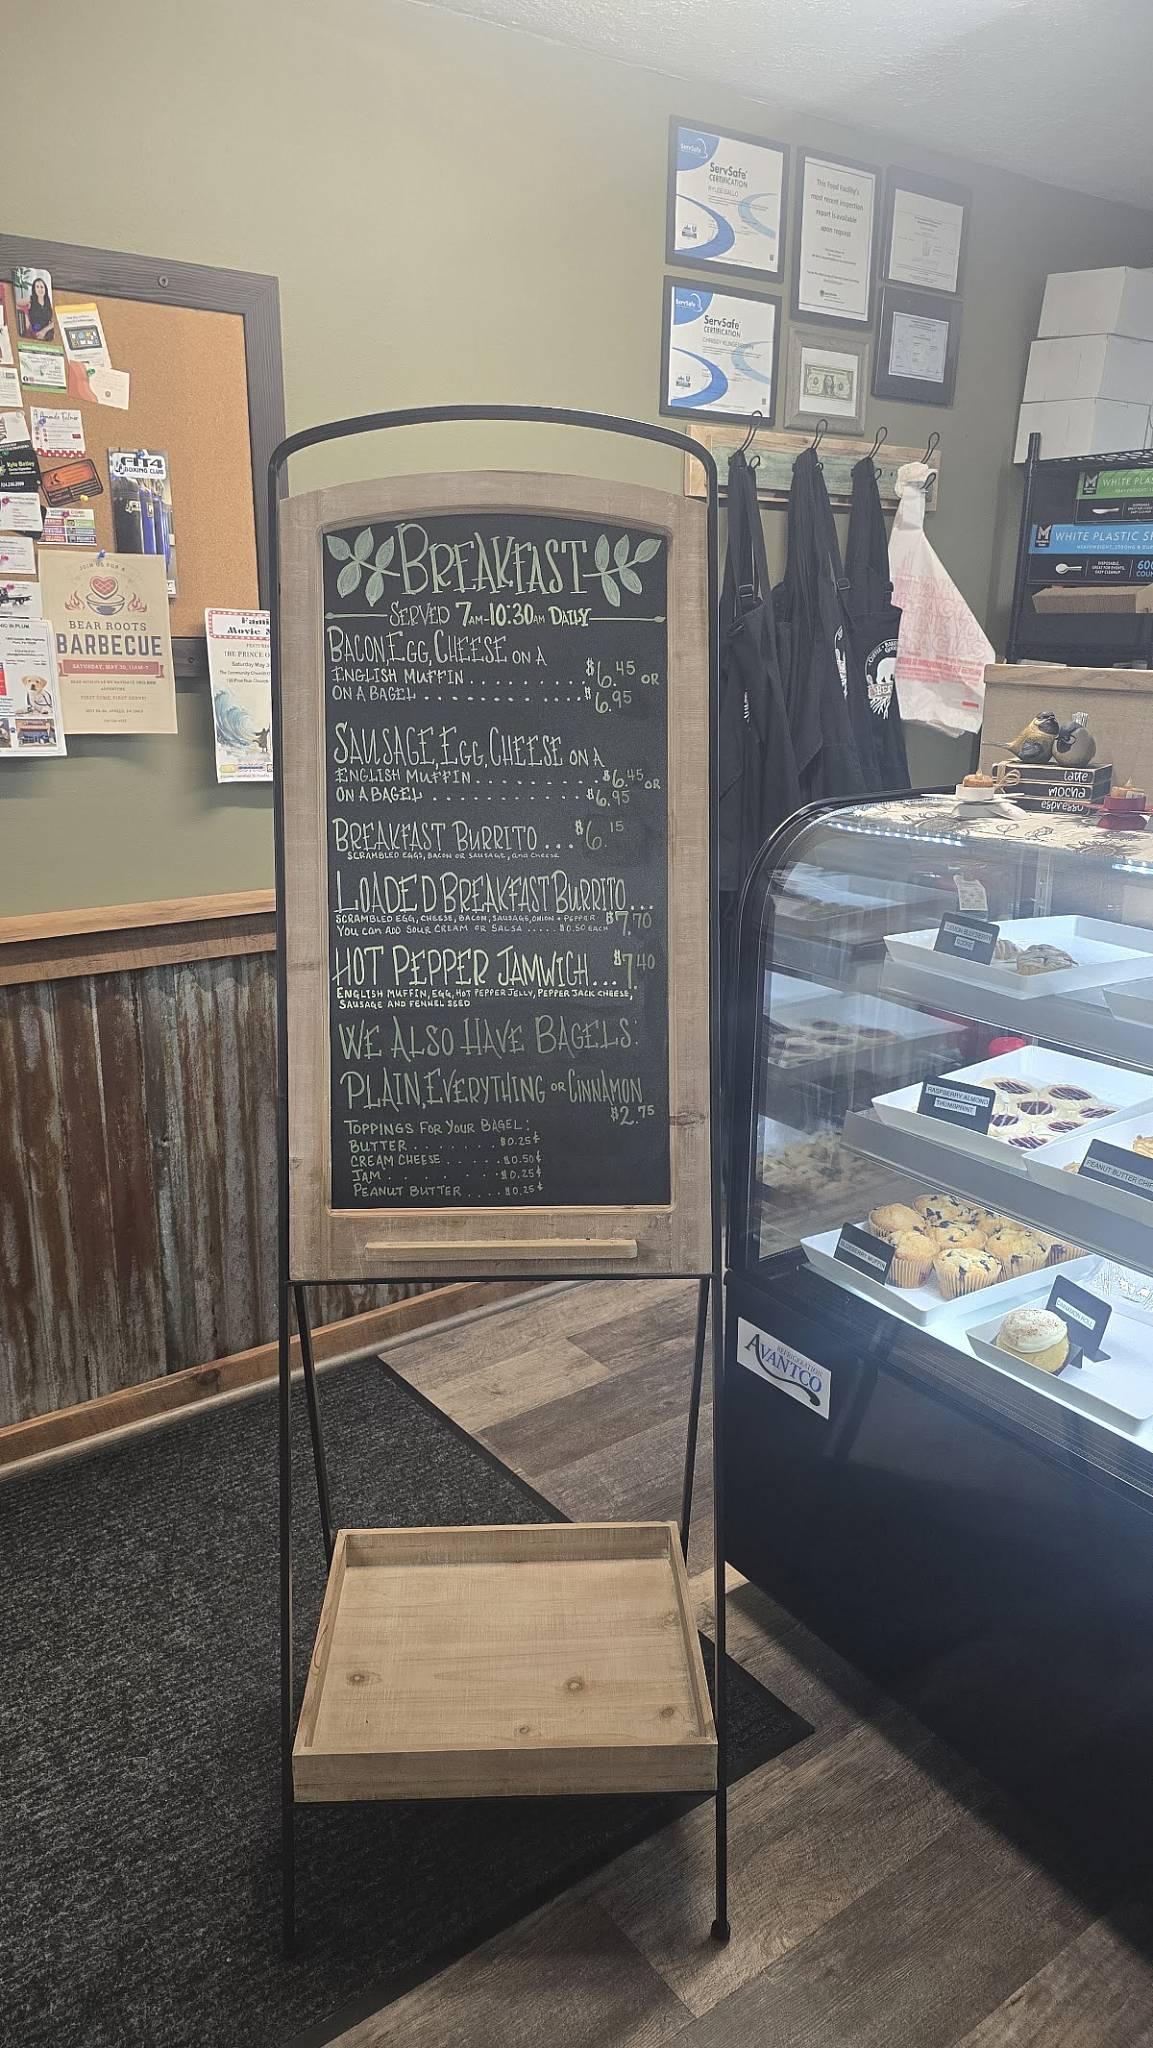 BREAKFAST
SERVED 7AM-10:30AM DAILY
BACON, EGG, CHEESE ON A
ENGLISH MUFFIN . . . . . . . . . . . $6.45 OR
ON A BAGEL . . . . . . . . . . . . . . $6.95
SAUSAGE, EGG, CHEESE ON A
ENGLISH MUFFIN . . . . . . . . . . $6.45 OR
ON A BAGEL . . . . . . . . . . . . $6.95
BREAKFAST BURRITO . . . $6.15
SCRAMBLED EGGS, BACON OR SAUSAGE, and CHEESE
LOADED BREAKFAST BURRITO . . .
SCRAMBLED EGG, CHEESE, BACON, SAUSAGE, ONION + PEPPER $7.70
YOU CAN ADD SOUR CREAM OR SALSA . . . . . $0.50 EACH
HOT PEPPER JAMWICH . . . $7.40
ENGLISH MUFFIN, EGG, HOT PEPPER JELLY, PEPPER JACK CHEESE,
SAUSAGE AND FENNEL SEED
WE ALSO HAVE BAGELS:
PLAIN, EVERYTHING OR CINNAMON
$2.75
TOPPINGS FOR YOUR BAGEL:
BUTTER . . . . . . . . . $0.25¢
CREAM CHEESE . . . . . $0.50¢
JAM . . . . . . . . . . . $0.25¢
PEANUT BUTTER . . . . $0.25¢
ServSafe
ServSafe
CERTIFICATION
RYLEE GALLO
ServSafe
ServSafe
CERTIFICATION
This Food Facility's
most recent inspection
report is available
upon request
FIT4
BOXING CLUB
JOIN US FOR A
BEAR ROOTS
BARBECUE
SATURDAY, MAY 30, 11AM-7
Movie
THE PRINCE O
Saturday May
WHITE PLAS
WHITE PLASTIC
latte
mocha
espresso
LEMON BLUEBERRY
SCONE
RASPBERRY ALMOND
THUMBPRINT
PEANUT BUTTER CHIP
BLUEBERRY MUFFIN
CINNAMON ROLL
AVANTCO
REFRIGERATION